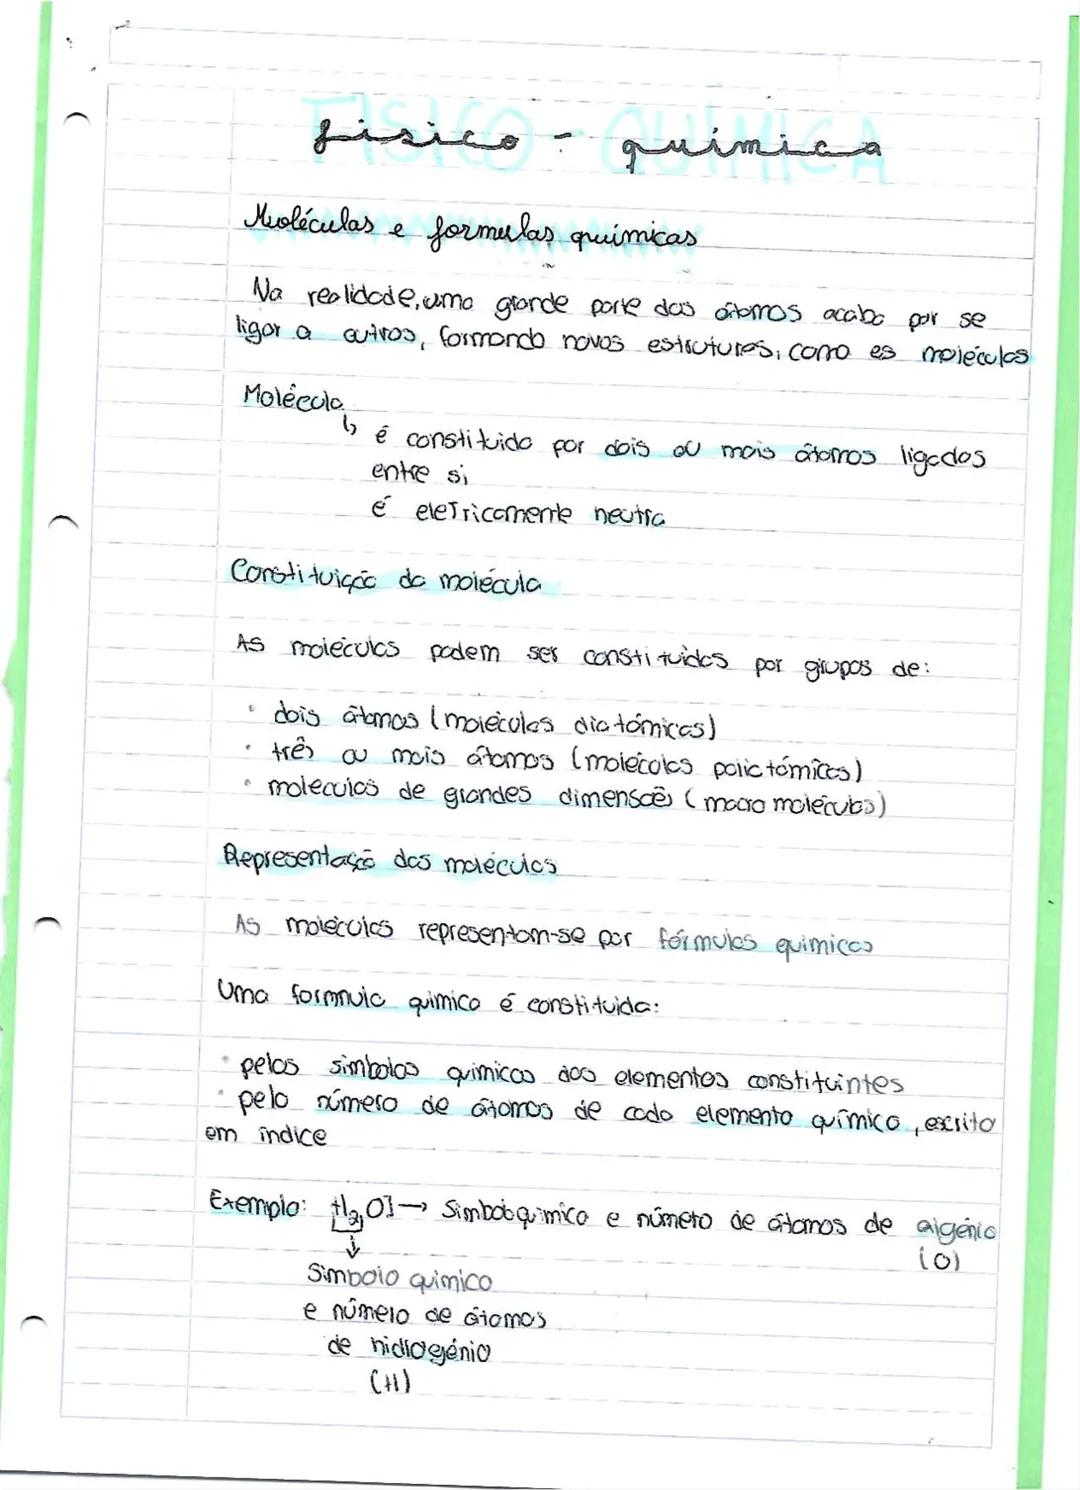 FISICO-QUIMICA
fisico - química
Moléculas e formulas químicas
Na realidade, uma grande parte dos átomos acaba por se
ligar a outros, formando novas estruturas, como as moléculas
Molécula
↳ é constituida por dois ou mais átomos ligados
entre si
é eletricamente neutra
Constituição da molécula
As moléculas podem ser constituidas por grupos de:
• dois átomos (moléculas diatómicas)
• três ou mais átomos (moléculas poliatómicas)
• moleculas de grandes dimensoẽs (macro moléculas)
Representação das moléculas
As moléculas representam-se por fórmulas quimicas
Uma formula quimica é constituida:
• pelos simbolos quimicos dos elementos constituintes
• pelo número de átomos de cada elemento químico, escrito
em índice
Exemplo: H2O → Simbolo quimico e número de átomos de oigénio
(O)
↓
Simbolo quimico
e número de átomos
de hidrogénio
(H)